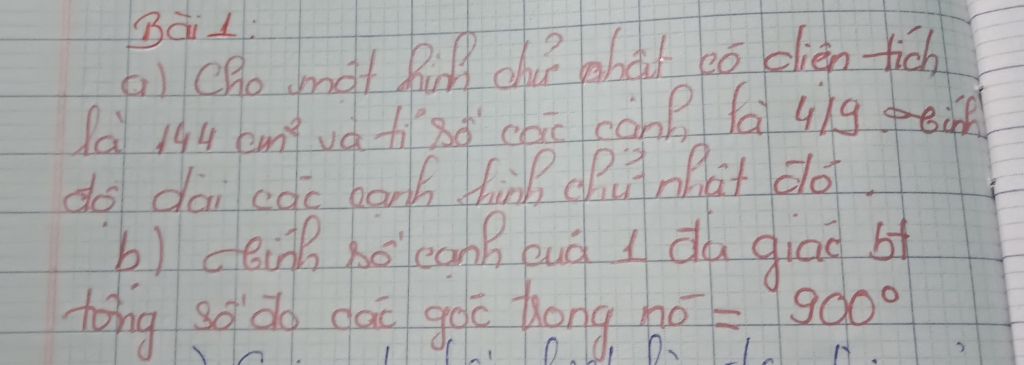 Bài 1:
a) Cho một hình chữ nhật có diện tích
là 144 cm² và tỉ số các cạnh là 4/9 tính
độ dài các cạnh hình chữ nhật đó.
b) Tính số cạnh của 1 đa giác bt
tổng số đo các góc trong nó = 900°